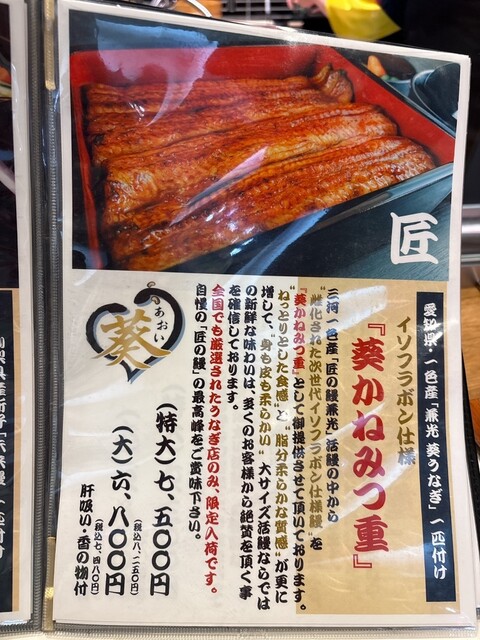 匠
愛知県・一色産「兼光 葵うなぎ」一匹付け
イソフラボン仕様
『葵かねみつ重』
三河一色産「匠の鰻兼光」活鰻の中から
"雌化された次世代イソフラボン仕様鰻"を
『葵かねみつ重』として御提供させて頂いております。
"ねっとりとした食感"と"脂分柔らかな質感"が更に
増して、"身も皮も柔らかい"大サイズ活鰻ならでは
の新鮮な味わいは、多くのお客様から絶賛を頂く事
を確信しております。
全国でも厳選されたうなぎ店のみ、限定入荷です。
自慢の「匠の鰻」の最高峰をご賞味下さい。
あおい
葵
(特大)七、五〇〇円
(税込八、二五〇円)
(大)六、八〇〇円
(税込七、四八〇円)
肝吸い・香の物付